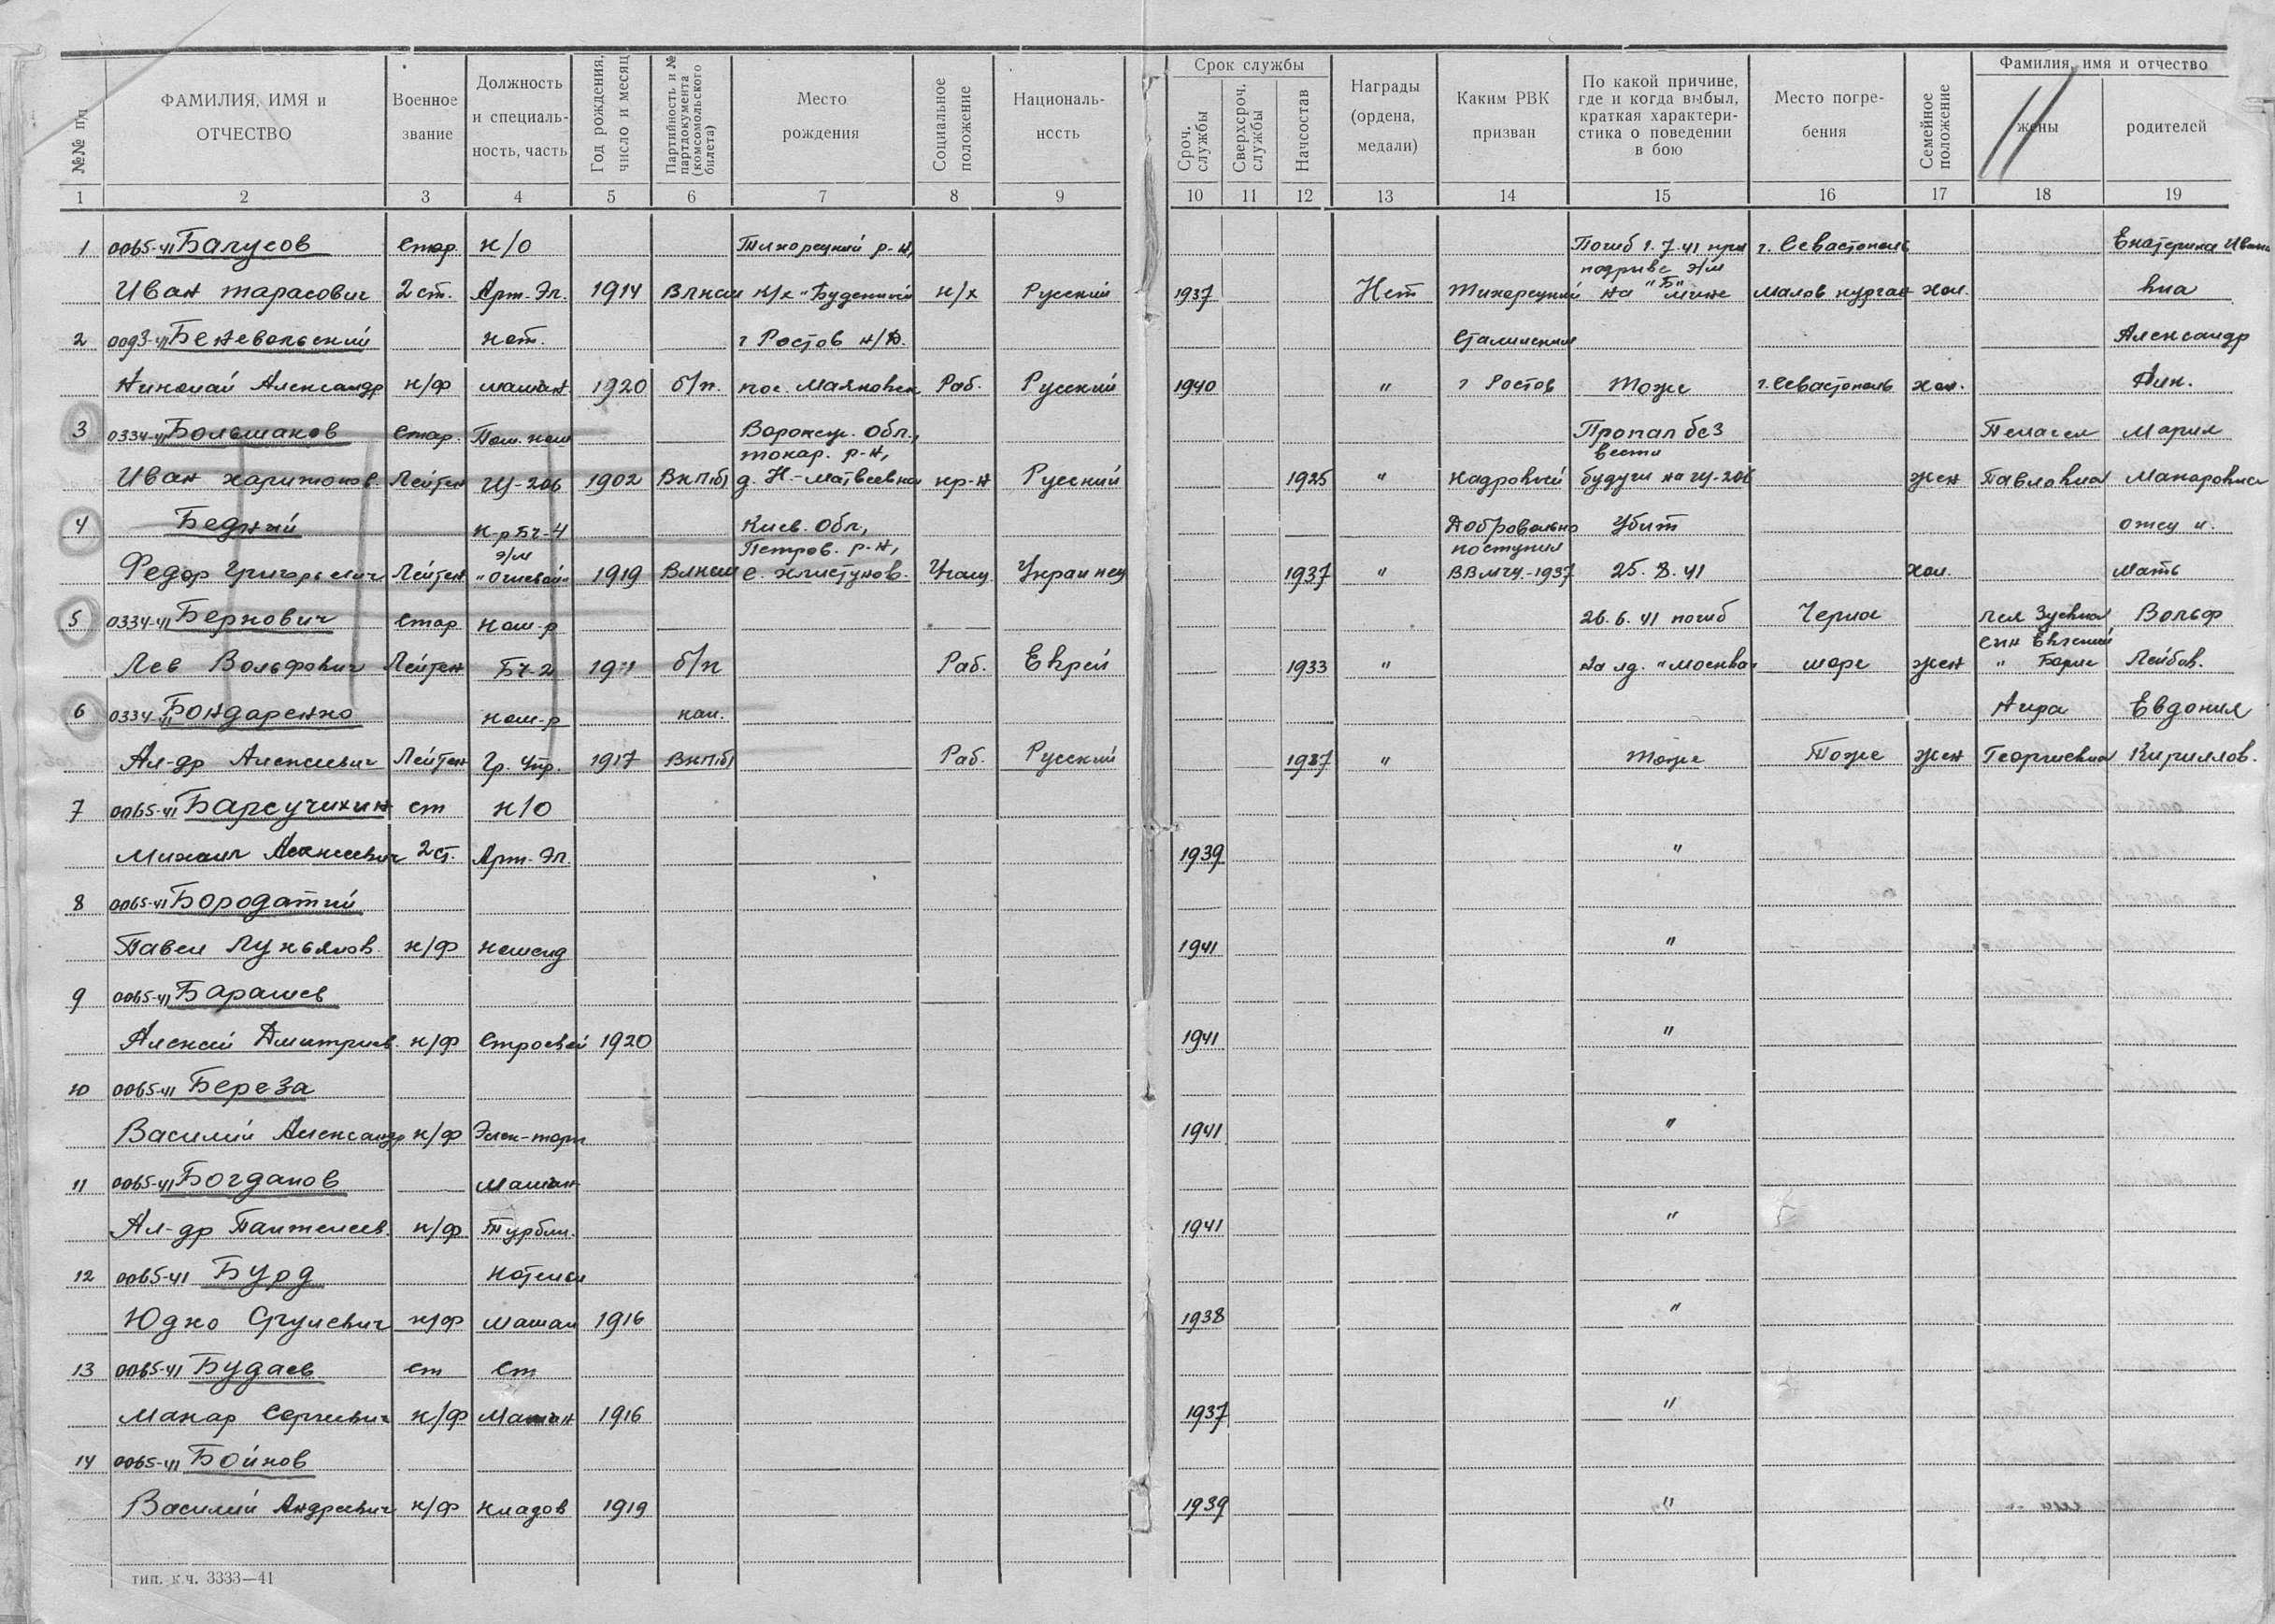 Срок службы
Фамилия, имя и отчество
№№ п/п
ФАМИЛИЯ, ИМЯ и ОТЧЕСТВО
Военное звание
Должность и специальность, часть
Год рождения, число и месяц
Партийность и № партдокумента (комсомольского билета)
Место рождения
Социальное положение
Национальность
Сроч. службы
Сверхсроч. службы
Начсостав
Награды (ордена, медали)
Каким РВК призван
По какой причине, где и когда выбыл, краткая характеристика о поведении в бою
Место погребения
Семейное положение
жены
родителей
11
1 2 3 4 5 6 7 8 9 10 11 12 13 14 15 16 17 18 19
1 0065-41 Балусов Стар. к/о Тихорецкий р-н, Погиб 1.7.41 при г. Севастополь Екатерина Ивано
подрыве э/м
Иван Тарасович 2 ст. Арт-Эл. 1914 ВЛКСМ к/х "Буденный к/х Русский 1937 Нет Тихорецкий на "Б" мине Малов курган хол. вна
2 0093-41 Беневольский Кот. г Ростов н/Д. Сталинский Александр
Николай Александр к/ф машин 1920 б/п. пос. Маяковск Раб. Русский 1940 " г Ростов Тоже г. Севастополь хол. Ник.
3 0334-41 Большаков Стар. Пом. ком Воронеж. Обл., Пропал без Пелагея Мария
токар. р-н, вести
Иван Харитонов. Лейтен Щ-206 1902 ВКП(б) д. Н.-Матвеевка кр-н Русский 1925 " Кадровый будучи на Щ-206 жен Павловна Макаровна
4 Бедный К-р БЧ-4 Киев. Обл., Добровольно Убит отец и.
э/м Петров. р-н, поступил
Федор Григорьевич Лейтен "Огневой" 1919 ВЛКСМ с. Хлистунов. Учащ Украинец 1937 " ВВМУ-1937 25.8.41 хол. мать
5 0334-41 Беркович Стар Ком-р 26.6.41 погиб Черное Лея Зусевна Вольф
сын Евгений
Лев Вольфович Лейтен БЧ-2 1911 б/п Раб. Еврей 1933 " на лд. "Москва" море жен " Борис Лейбов.
6 0334-41 Бондаренко ком-р кан. Аира Евдокия
Ал-др Алексеевич Лейтен Гр. Упр. 1917 ВКП(б) Раб. Русский 1937 " Тоже Тоже жен Георгиевна Кириллов.
7 0065-41 Барсучихин ст к/о
Михаил Алексеевич 2 ст. Арт-Эл. 1939 "
8 0065-41 Бородатый
Павел Лукьянов. к/ф коменд 1941 "
9 0065-41 Барашев
Алексей Дмитриев. к/ф Строевой 1920 1941 "
10 0065-41 Береза
Василий Александр к/ф Элек-торп 1941 "
11 0065-41 Богданов Машин
Ал-др Пантелеев. к/ф Турбин. 1941 "
12 0065-41 Бурд Котельн
Юдко Срулевич к/ф машин 1916 1938 "
13 0065-41 Будаев ст Ст
Макар Сергеевич к/ф Машин 1916 1937 "
14 0065-41 Бойков
Василий Андреевич к/ф Кладов 1919 1939 "
тип. к.ч. 3333—41